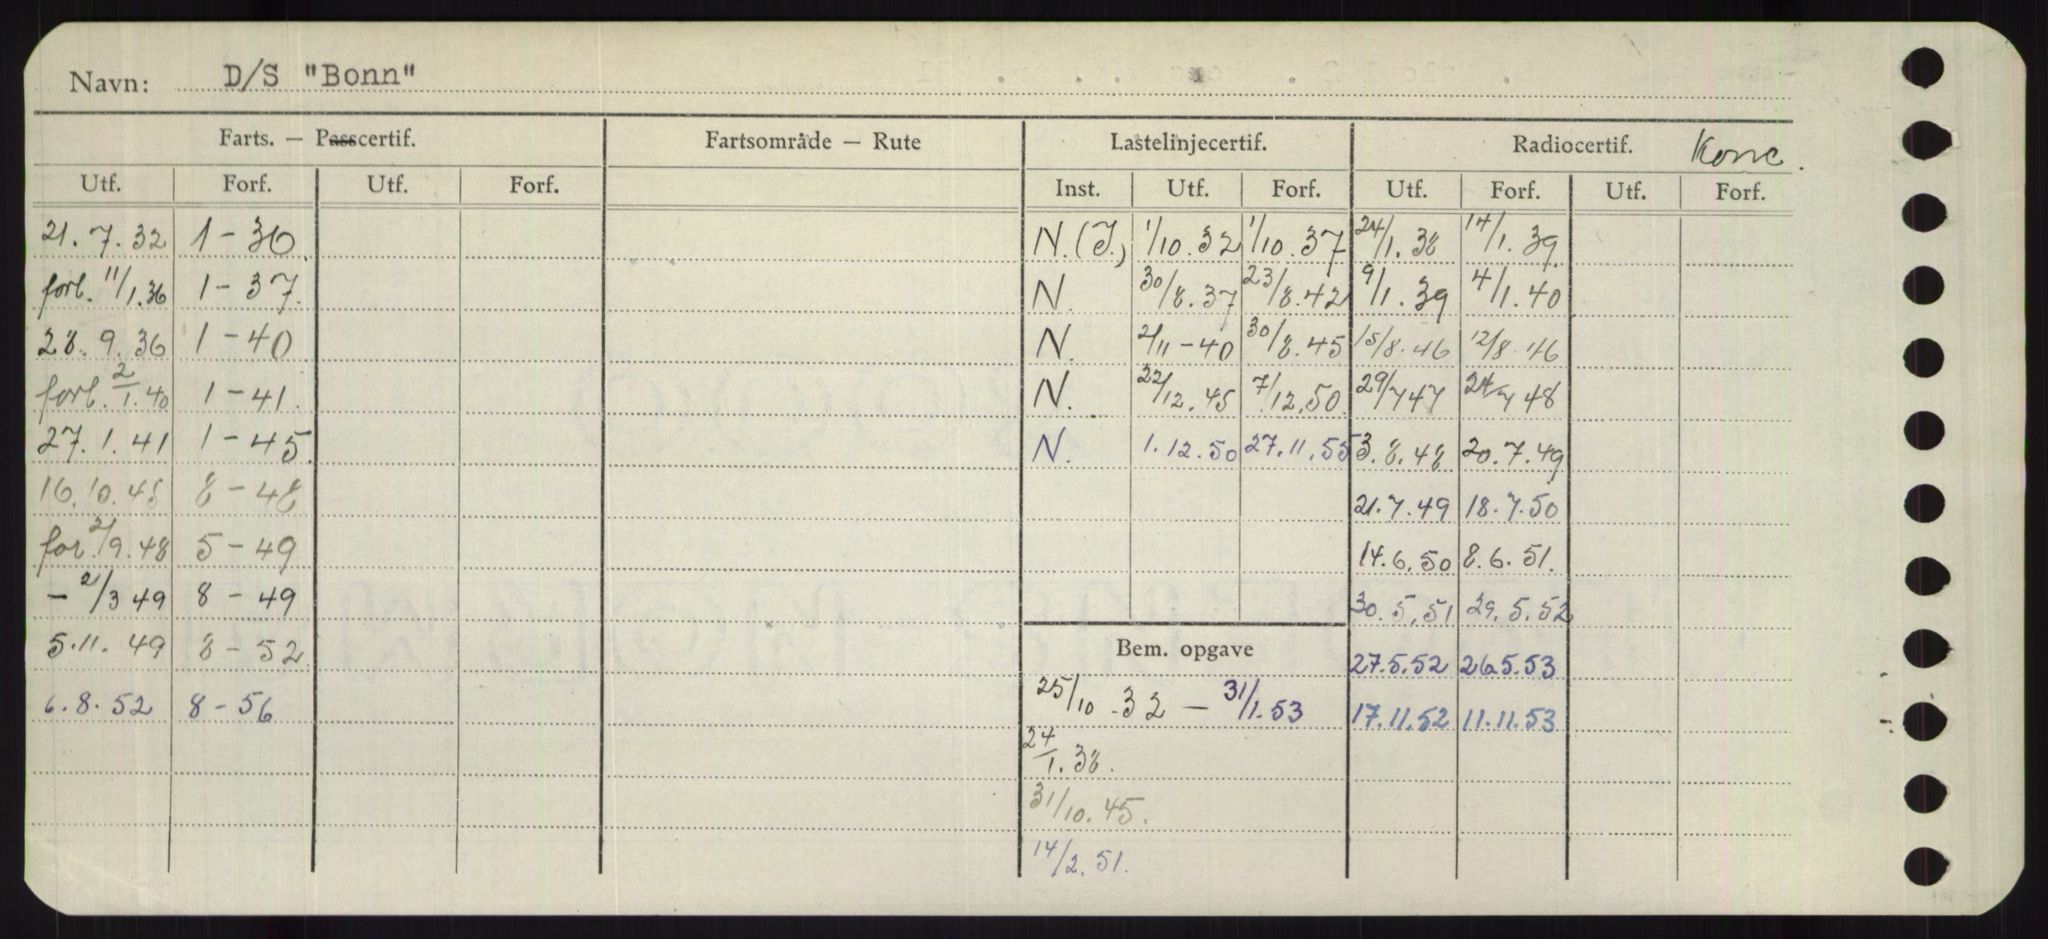 Navn: D/S "Bonn"
Farts. — Passcertif. Fartsområde — Rute Lastelinjecertif. Radiocertif. Konc.
Utf. Forf. Utf. Forf. Inst. Utf. Forf. Utf. Forf. Utf. Forf.
21.7.32 1-36 N.(I.) 1/10.32 1/10.37 24/1.38 14/1.39
forl. 11/1.36 1-37. N. 30/8.37 23/8.42 9/1.39 4/1.40
28.9.36 1-40 N. 2/11-40 30/8.45 15/8.46 12/8.46
forl. 2/1.40 1-41. N. 22/12.45 7/12.50 29/7 47 24/7 48
27.1.41 1-45. N. 1.12.50 27.11.55 3.8.48 20.7.49
16.10.45 8-48 21.7.49 18.7.50
for. 2/9.48 5-49 14.6.50 8.6.51.
- 2/3 49 8-49 30.5.51 29.5.52
5.11.49 8-52 Bem. opgave 27.5.52 26.5.53
6.8.52 8-56 25/10.32 — 31/1.53 17.11.52 11.11.53
24/1.38.
31/10.45.
14/2.51.